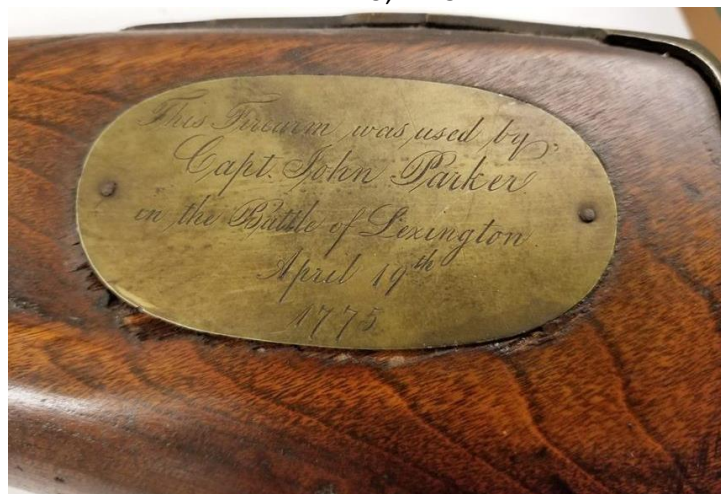 This Firearm was used by
Capt. John Parker
in the Battle of Lexington
April 19th
1775.